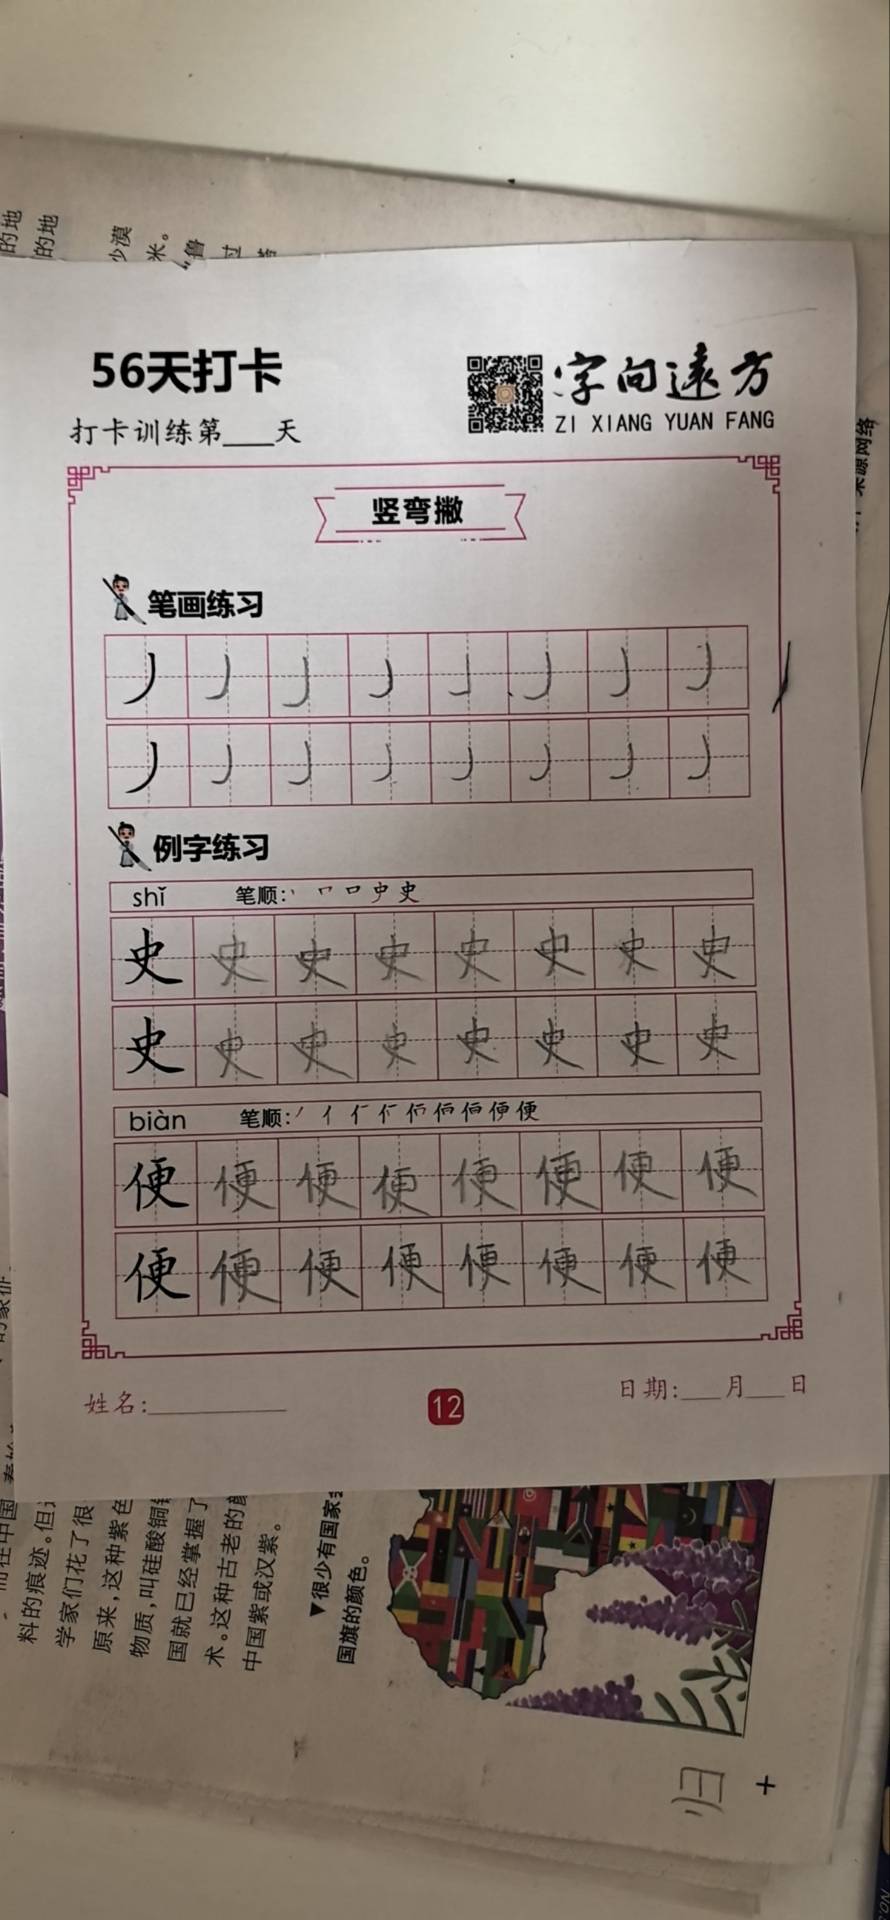 的地
的地
沙漠
米。
“鲁
过
56天打卡
字向遠方
ZI XIANG YUAN FANG
打卡训练第____天
来源网络
竖弯撇
笔画练习
丿 丿 丿 丿 丿 丿 丿 丿
丿 丿 丿 丿 丿 丿 丿 丿
例字练习
shǐ 笔顺:丶 冖 口 史 史
史 史 史 史 史 史 史 史
史 史 史 史 史 史 史 史
biàn 笔顺:
便 便 便 便 便 便 便 便
便 便 便 便 便 便 便 便
姓名:__________
12
日期:___月___日
料的痕迹。但
学家们花了很
原来,这种紫色
物质,叫硅酸铜
国就已经掌握了
术。这种古老的
中国紫或汉紫。
▼很少有国家
国旗的颜色。
归
+